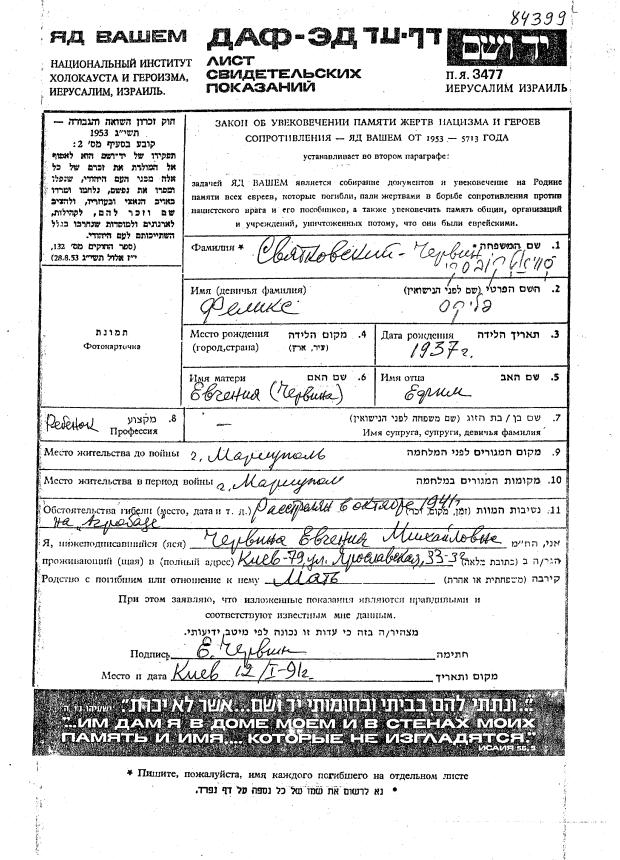 84399
ЯД ВАШЕМ ДАФ-ЭД דף-עד יד ושם
НАЦИОНАЛЬНЫЙ ИНСТИТУТ
ХОЛОКАУСТА И ГЕРОИЗМА,
ИЕРУСАЛИМ, ИЗРАИЛЬ.
ЛИСТ
СВИДЕТЕЛЬСКИХ
ПОКАЗАНИЙ
П.Я. 3477
ИЕРУСАЛИМ ИЗРАИЛЬ
חוק זכרון השואה והגבורה —
תשי״ג 1953
קובע בסעיף מס׳ 2:
תפקידו של יד־ושם הוא לאסוף
אל המולדת את זכרם של כל
אלה מבני העם היהודי, שנפלו
ומסרו את נפשם, נלחמו ומרדו
באויב הנאצי ובעוזריו, ולהציב
שם וזכר להם, לקהילות,
לארגונים ולמוסדות שנחרבו בגלל
השתייכותם לעם היהודי.
(ספר החוקים מס׳ 132,
י״ז אלול תשי״ג 28.8.53)
תמונת
Фотокарточка
ЗАКОН ОБ УВЕКОВЕЧЕНИИ ПАМЯТИ ЖЕРТВ НАЦИЗМА И ГЕРОЕВ
СОПРОТИВЛЕНИЯ — ЯД ВАШЕМ ОТ 1953 — 5713 ГОДА
устанавливает во втором параграфе:
задачей ЯД ВАШЕМ является собирание документов и увековечение на Родине
памяти всех евреев, которые погибли, пали жертвами в борьбе сопротивления против
нацистского врага и его пособников, а также увековечить память общин, организаций
и учреждений, уничтоженных потому, что они были еврейскими.
Фамилия * Святковский - Червин 1. שם המשפחה*
Имя (девичья фамилия) 2. השם הפרטי (שם לפני הנישואין)
Феликс פליקס
Место рождения 4. מקום הלידה Дата рождения 3. תאריך הלידה
(город,страна) (עיר, ארץ) 1937г.
Имя матери 6. שם האם Имя отца 5. שם האב
Евгения (Червина) Ефим
Ребенок 8. מקצוע — 7. שם בן / בת הזוג (שם משפחה לפני הנישואין)
Профессия Имя супруга, супруги, девичья фамилия
Место жительства до войны г. Мариуполь 9. מקום המגורים לפני המלחמה
Место жительства в период войны г. Мариупол 10. מקומות המגורים במלחמה
Обстоятельства гибели (место, дата и т. д.) Расстрелян в октябре 1941г 11. נסיבות המוות (זמן, מקום, וכו׳)
на "Агробазе"
Я, нижеподписавшийся (аяся) Червина Евгения Михайловна אני, הח״מ
проживающий (щая) в (полный адрес) Киев-79, ул. Ярославская, 33-32 הגר/ה ב (כתובת מלאה)
Родство с погибшим или отношение к нему Мать קירבה (משפחתית או אחרת)
При этом заявляю, что изложенные показания являются правдивыми и
соответствуют известным мне данным.
מצהיר/ה בזה כי עדות זו נכונה לפי מיטב ידיעותי.
Подпись Е. Червин חתימה
Место и дата Киев 12/I-91г מקום ותאריך
"...ונתתי להם בביתי ובחומותי יד ושם... אשר לא יכרת" ישעיהו נו, ה
"...ИМ ДАМ Я В ДОМЕ МОЕМ И В СТЕНАХ МОИХ
ПАМЯТЬ И ИМЯ,... КОТОРЫЕ НЕ ИЗГЛАДЯТСЯ."
ИСАИЯ 56, 5
* Пишите, пожалуйста, имя каждого погибшего на отдельном листе
* נא לרשום את שמו של כל נספה על דף נפרד.